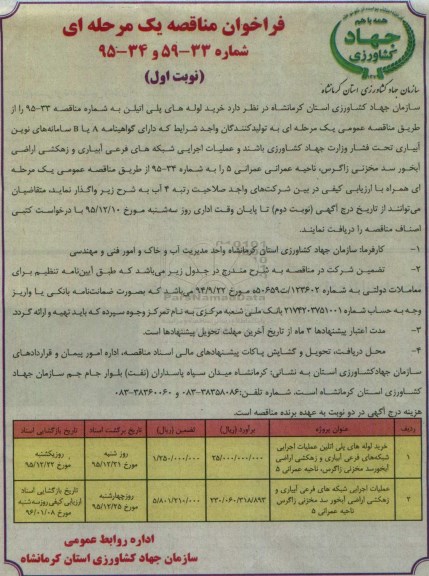 همه با هم
جهاد
کشاورزی
سازمان جهاد کشاورزی استان کرمانشاه
فراخوان مناقصه یک مرحله ای
شماره ۳۳-۵۹ و ۳۴-۹۵
(نوبت اول)
سازمان جهاد کشاورزی استان کرمانشاه در نظر دارد خرید لوله های پلی اتیلن به شماره مناقصه ۳۳-۹۵ را از
طریق مناقصه عمومی یک مرحله ای به تولیدکنندگان واجد شرایط که دارای گواهینامه A یا B سامانه‌های نوین
آبیاری تحت فشار وزارت جهاد کشاورزی باشند و عملیات اجرایی شبکه های فرعی آبیاری و زهکشی اراضی
آبخور سد مخزنی زاگرس، ناحیه عمرانی عمرانی ۵ را به شماره ۳۴-۹۵ از طریق مناقصه عمومی یک مرحله
ای همراه با ارزیابی کیفی در بین شرکت‌های واجد صلاحیت رتبه ۴ آب به شرح زیر واگذار نماید، متقاضیان
می‌توانند از تاریخ درج آگهی (نوبت دوم) تا پایان وقت اداری روز سه‌شنبه مورخ ۹۵/۱۲/۱۰ با درخواست کتبی
اسناد مناقصه را دریافت نمایند.
۱- کارفرما: سازمان جهاد کشاورزی استان کرمانشاه واحد مدیریت آب و خاک و امور فنی و مهندسی
۲- تضمین شرکت در مناقصه به شرح مندرج در جدول زیر می‌باشد که طبق آیین‌نامه تنظیم برای
معاملات دولتی به شماره ۱۲۳۴۰۲/ت۵۰۶۵۹ه مورخ ۹۴/۹/۲۲ می‌باشد که بصورت ضمانت‌نامه بانکی یا واریز
وجه به حساب شماره ۲۱۷۴۲۰۳۷۵۱۰۰۱ بانک ملی شعبه مرکزی به نام تمرکز وجوه سپرده که باید تهیه و ارائه گردد.
۳- مدت اعتبار پیشنهادها ۳ ماه از تاریخ آخرین مهلت تحویل پیشنهادها است.
۴- محل دریافت، تحویل و گشایش پاکات پیشنهادهای مالی اسناد مناقصه، اداره امور پیمان و قراردادهای
سازمان جهادکشاورزی استان به نشانی: کرمانشاه میدان سپاه پاسداران (نفت) بلوار جام جم سازمان جهاد
کشاورزی استان کرمانشاه است. شماره تلفن: ۳۸۳۵۸۰۸۶-۰۸۳ و ۳۸۳۶۰۰۶۰-۰۸۳
هزینه درج آگهی در دو نوبت به عهده برنده مناقصه است.
ردیف عنوان پروژه برآورد (ریال) تضمین (ریال) تاریخ برگشت اسناد تاریخ بازگشایی اسناد
۱ خرید لوله های پلی اتلین عملیات اجرایی شبکه‌های فرعی آبیاری و زهکشی اراضی آبخورسد مخزنی زاگرس، ناحیه عمرانی ۵ ۲۵/۰۰۰/۰۰۰/۰۰۰ ۱/۲۵۰/۰۰۰/۰۰۰ روز شنبه مورخ ۹۵/۱۲/۲۱ روز یکشنبه مورخ ۹۵/۱۲/۲۲
۲ عملیات اجرایی شبکه های فرعی آبیاری و زهکشی اراضی آبخور سد مخزنی زاگرس، ناحیه عمرانی ۵ ۲۳۰/۰۶۰/۳۱۸/۸۹۳ ۵/۸۰۱/۲۱۰/۰۰۰ روز چهارشنبه مورخ ۹۵/۱۲/۲۵ تاریخ بازگشایی اسناد ارزیابی کیفی روز سه‌شنبه مورخ ۹۶/۰۱/۰۸
اداره روابط عمومی
سازمان جهاد کشاورزی استان کرمانشاه